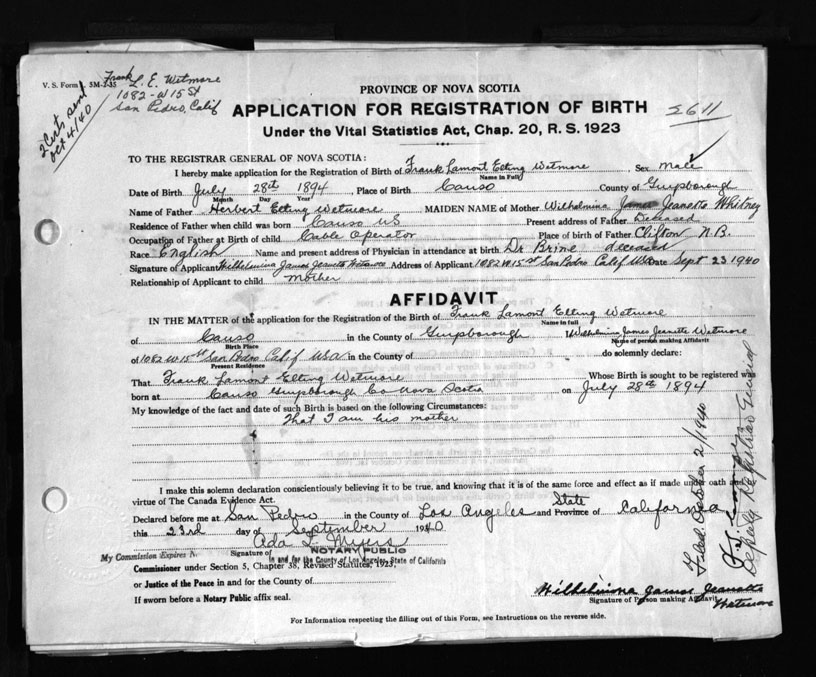 V. S. Form 3M-7-35
Frank L. E. Wetmore
1082-W 15 St
San Pedro, Calif
2 Certs sent
Oct 4/40
PROVINCE OF NOVA SCOTIA
APPLICATION FOR REGISTRATION OF BIRTH
Under the Vital Statistics Act, Chap. 20, R. S. 1923
TO THE REGISTRAR GENERAL OF NOVA SCOTIA:
I hereby make application for the Registration of Birth of Frank Lamont Elting Wetmore Sex Male
Name in Full
Date of Birth July 28th 1894, Place of Birth Canso County of Guysborough
Month Day Year
Name of Father Herbert Elting Wetmore MAIDEN NAME of Mother Wilhelmina James Jeanette Whitney
Residence of Father when child was born Canso NS Present address of Father Deceased
Occupation of Father at Birth of child Cable Operator Place of birth of Father Clifton N.B.
Race English Name and present address of Physician in attendance at birth Dr Brine deceased
Signature of Applicant Wilhelmina James Jeanette Wetmore Address of Applicant 1082 W 15 st San Pedro Calif USA Date Sept 23 1940
Relationship of Applicant to child mother
AFFIDAVIT
IN THE MATTER of the application for the Registration of the Birth of Frank Lamont Elting Wetmore
Name in full
of Canso in the County of Guysborough I Wilhelmina James Jeanette Wetmore
Birth Place Name of person making Affidavit
of 1082 W 15 st San Pedro Calif USA in the County of do solemnly declare:
Present Residence
That Frank Lamont Elting Wetmore Whose Birth is sought to be registered was
born at Canso Guysborough Co Nova Scotia on July 28th 1894
My knowledge of the fact and date of such Birth is based on the following Circumstances:
That I am his mother
I make this solemn declaration conscientiously believing it to be true, and knowing that it is of the same force and effect as if made under oath and
virtue of The Canada Evidence Act.
Declared before me at San Pedro in the County of Los Angeles State and Province of California
this 23rd day of September 1940
Ada L. Myers
Signature of NOTARY PUBLIC
My Commission Expires
In and for the County of Los Angeles, State of California
Commissioner under Section 5, Chapter 38, Revised Statutes, 1923,
or Justice of the Peace in and for the County of
If sworn before a Notary Public affix seal.
Wilhelmina James Jeanette
Wetmore
Signature of Person making Affidavit
For Information respecting the filling out of this Form, see Instructions on the reverse side.
Filed October 2/1940
Deputy Registrar General